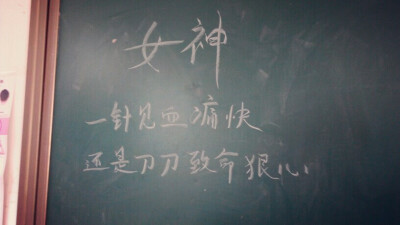 女神
一针见血痛快
还是刀刀致命狠心